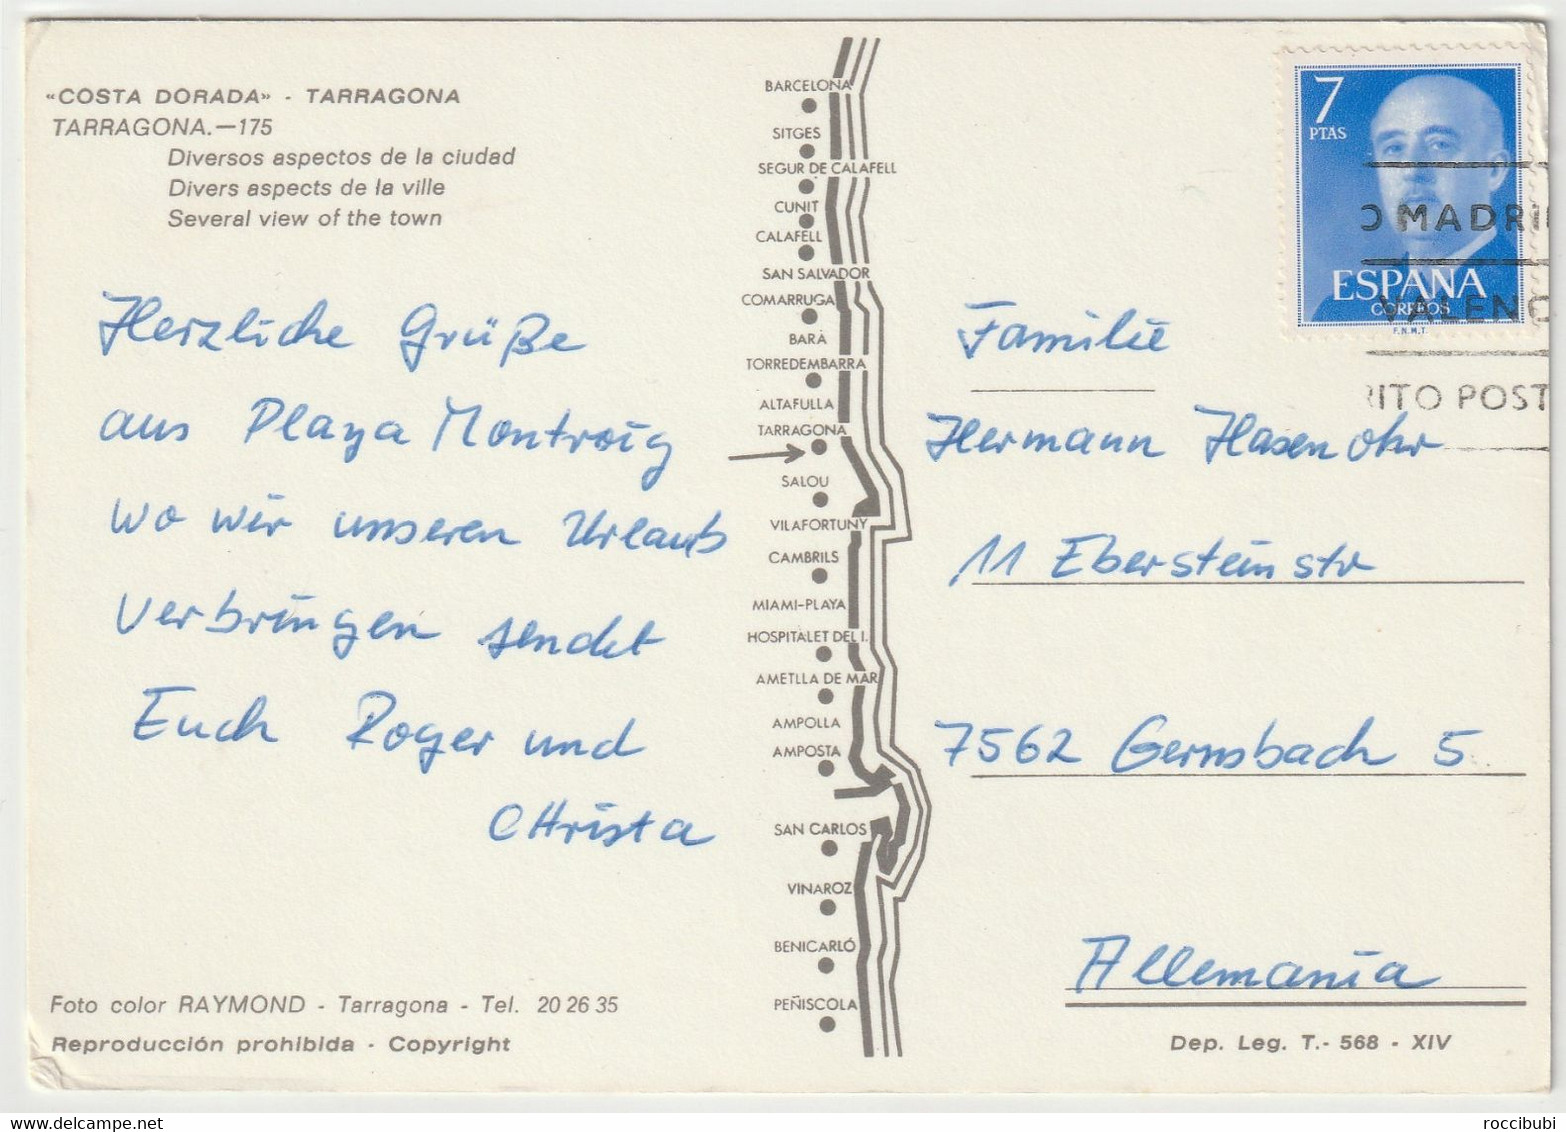 «COSTA DORADA» - TARRAGONA
TARRAGONA.—175
Diversos aspectos de la ciudad
Divers aspects de la ville
Several view of the town
Herzliche Grüße
aus Playa Montroig
wo wir unseren Urlaub
verbringen sendet
Euch Roger und
CHrista
Foto color RAYMOND - Tarragona - Tel. 20 26 35
Reproducción prohibida - Copyright
BARCELONA
SITGES
SEGUR DE CALAFELL
CUNIT
CALAFELL
SAN SALVADOR
COMARRUGA
BARÀ
TORREDEMBARRA
ALTAFULLA
TARRAGONA
SALOU
VILAFORTUNY
CAMBRILS
MIAMI-PLAYA
HOSPITALET DEL I.
AMETLLA DE MAR
AMPOLLA
AMPOSTA
SAN CARLOS
VINAROZ
BENICARLÓ
PEÑISCOLA
7
PTAS
ESPAÑA
CORREOS
F.N.M.T.
O MADRI
VALENC
RITO POST
Familie
Hermann Hasenohr
11 Ebersteinstr
7562 Gernsbach 5
Allemania
Dep. Leg. T.- 568 - XIV
roccibubi